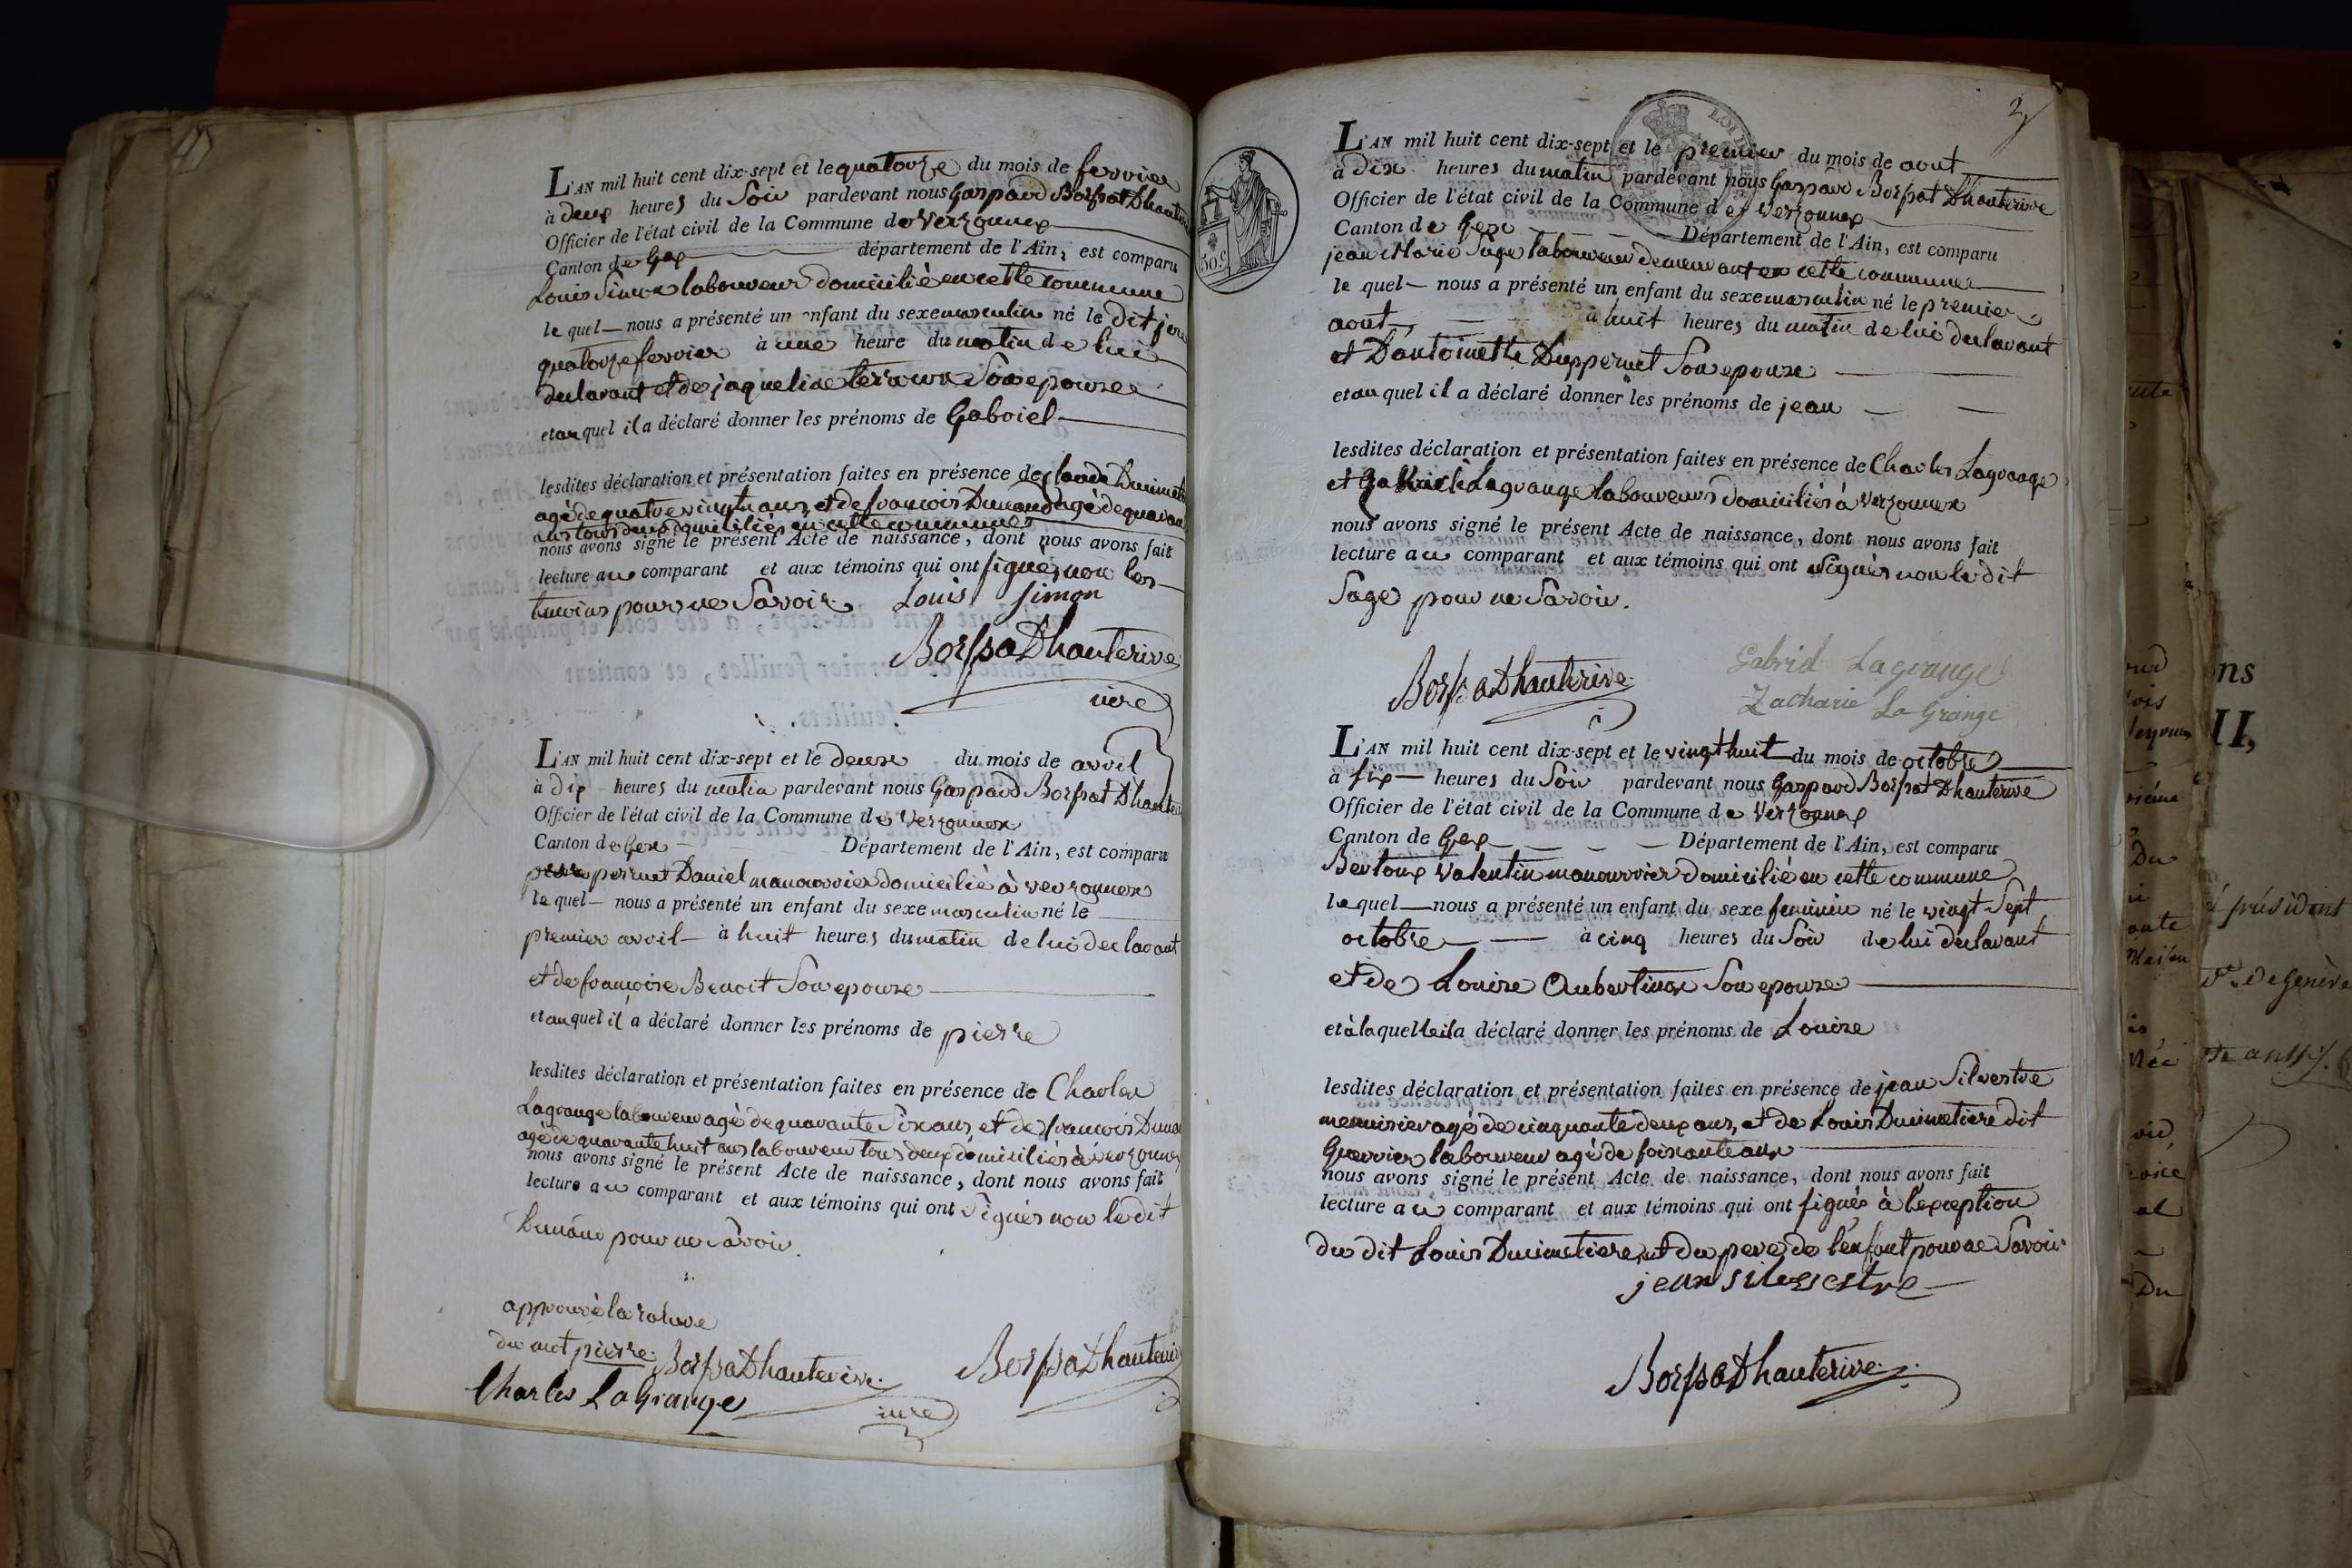 L'AN mil huit cent dix-sept et le quatorze du mois de fevrier
à deux heures du Soir pardevant nous Gaspard Borssat Dhauterive
Officier de l'état civil de la Commune de Verzonnex
Canton de Gex département de l'Ain, est comparu
Louis Simon laboureur domicilié en cette commune
le quel nous a présenté un enfant du sexe masculin né le dit jour
quatorze fevrier à une heure du matin de lui
declarant et de jaqueline terraux Son epouse
et au quel il a déclaré donner les prénoms de Gabriel
lesdites déclaration et présentation faites en présence de claude Ducimetie
agé de quatrevingts ans, et de francois Dunand agé de quaran
ans tous deux domiciliés en cette commune
nous avons signé le présent Acte de naissance, dont nous avons fait
lecture au comparant et aux témoins qui ont signés non les
temoins pour ne Savoir. Louis Simon
Borssat Dhauterive
mre
L'AN mil huit cent dix-sept et le deux du mois de avril
à dix heures du matin pardevant nous Gaspard Borssat Dhauterive
Officier de l'état civil de la Commune de Verzonnex
Canton de Gex Département de l'Ain, est comparu
pierre pernet Daniel manouvrier domicilié à verzonnex
le quel nous a présenté un enfant du sexe masculin né le
premier avril à huit heures du matin de lui declarant
et de francoise Benoit Son epouse
et au quel il a déclaré donner les prénoms de pierre
lesdites déclaration et présentation faites en présence de Charles
Lagrange laboureur agé de quarante Six ans, et de francois Dunan
agé de quarante huit ans laboureur tous deux domiciliés à verzonnex
nous avons signé le présent Acte de naissance, dont nous avons fait
lecture au comparant et aux témoins qui ont Signés non le dit
Dunand pour ne Savoir.
approuvé la rature
du mot pierre. Borssat Dhauterive Borssat Dhauterive
Charles LaGrange mre
2
L'AN mil huit cent dix-sept et le premier du mois de aout
à dix heures du matin pardevant nous Gaspard Borssat Dhauterive
Officier de l'état civil de la Commune de Verzonnex
Canton de Gex Département de l'Ain, est comparu
jean Marie Sage laboureur demeurant en cette commune
le quel nous a présenté un enfant du sexe masculin né le premier
aout à huit heures du matin de lui declarant
et D'antoinette Duppernet Son epouse
et au quel il a déclaré donner les prénoms de jean
lesdites déclaration et présentation faites en présence de Charles Lagrange
et Gabriel Lagrange laboureurs domiciliés à Verzonnex
nous avons signé le présent Acte de naissance, dont nous avons fait
lecture au comparant et aux témoins qui ont Signés non le dit
Sage pour ne Savoir.
Gabriel Lagrange
Borssat Dhauterive Zacharie La Grange
50.c
L'AN mil huit cent dix-sept et le vingt huit du mois de octobre
à six heures du Soir pardevant nous Gaspard Borssat Dhauterive
Officier de l'état civil de la Commune de Verzonnex
Canton de Gex Département de l'Ain, est comparu
Bertoux Valentin manouvrier domicilié en cette commune
le quel nous a présenté un enfant du sexe feminin né le vingt Sept
octobre à cinq heures du Soir de lui declarant
et de Louise Aubertinox Son epouse
et à laquelle il a déclaré donner les prénoms de Louise
lesdites déclaration et présentation faites en présence de jean Silvestre
menuisier agé de cinquante deux ans, et de Louis Ducimetiere dit
Guerrier laboureur agé de soixante ans
nous avons signé le présent Acte de naissance, dont nous avons fait
lecture au comparant et aux témoins qui ont signés à l'exception
du dit Louis Ducimetiere, et du pere de l'enfant pour ne Savoir
jean silvestre
Borssat Dhauterive